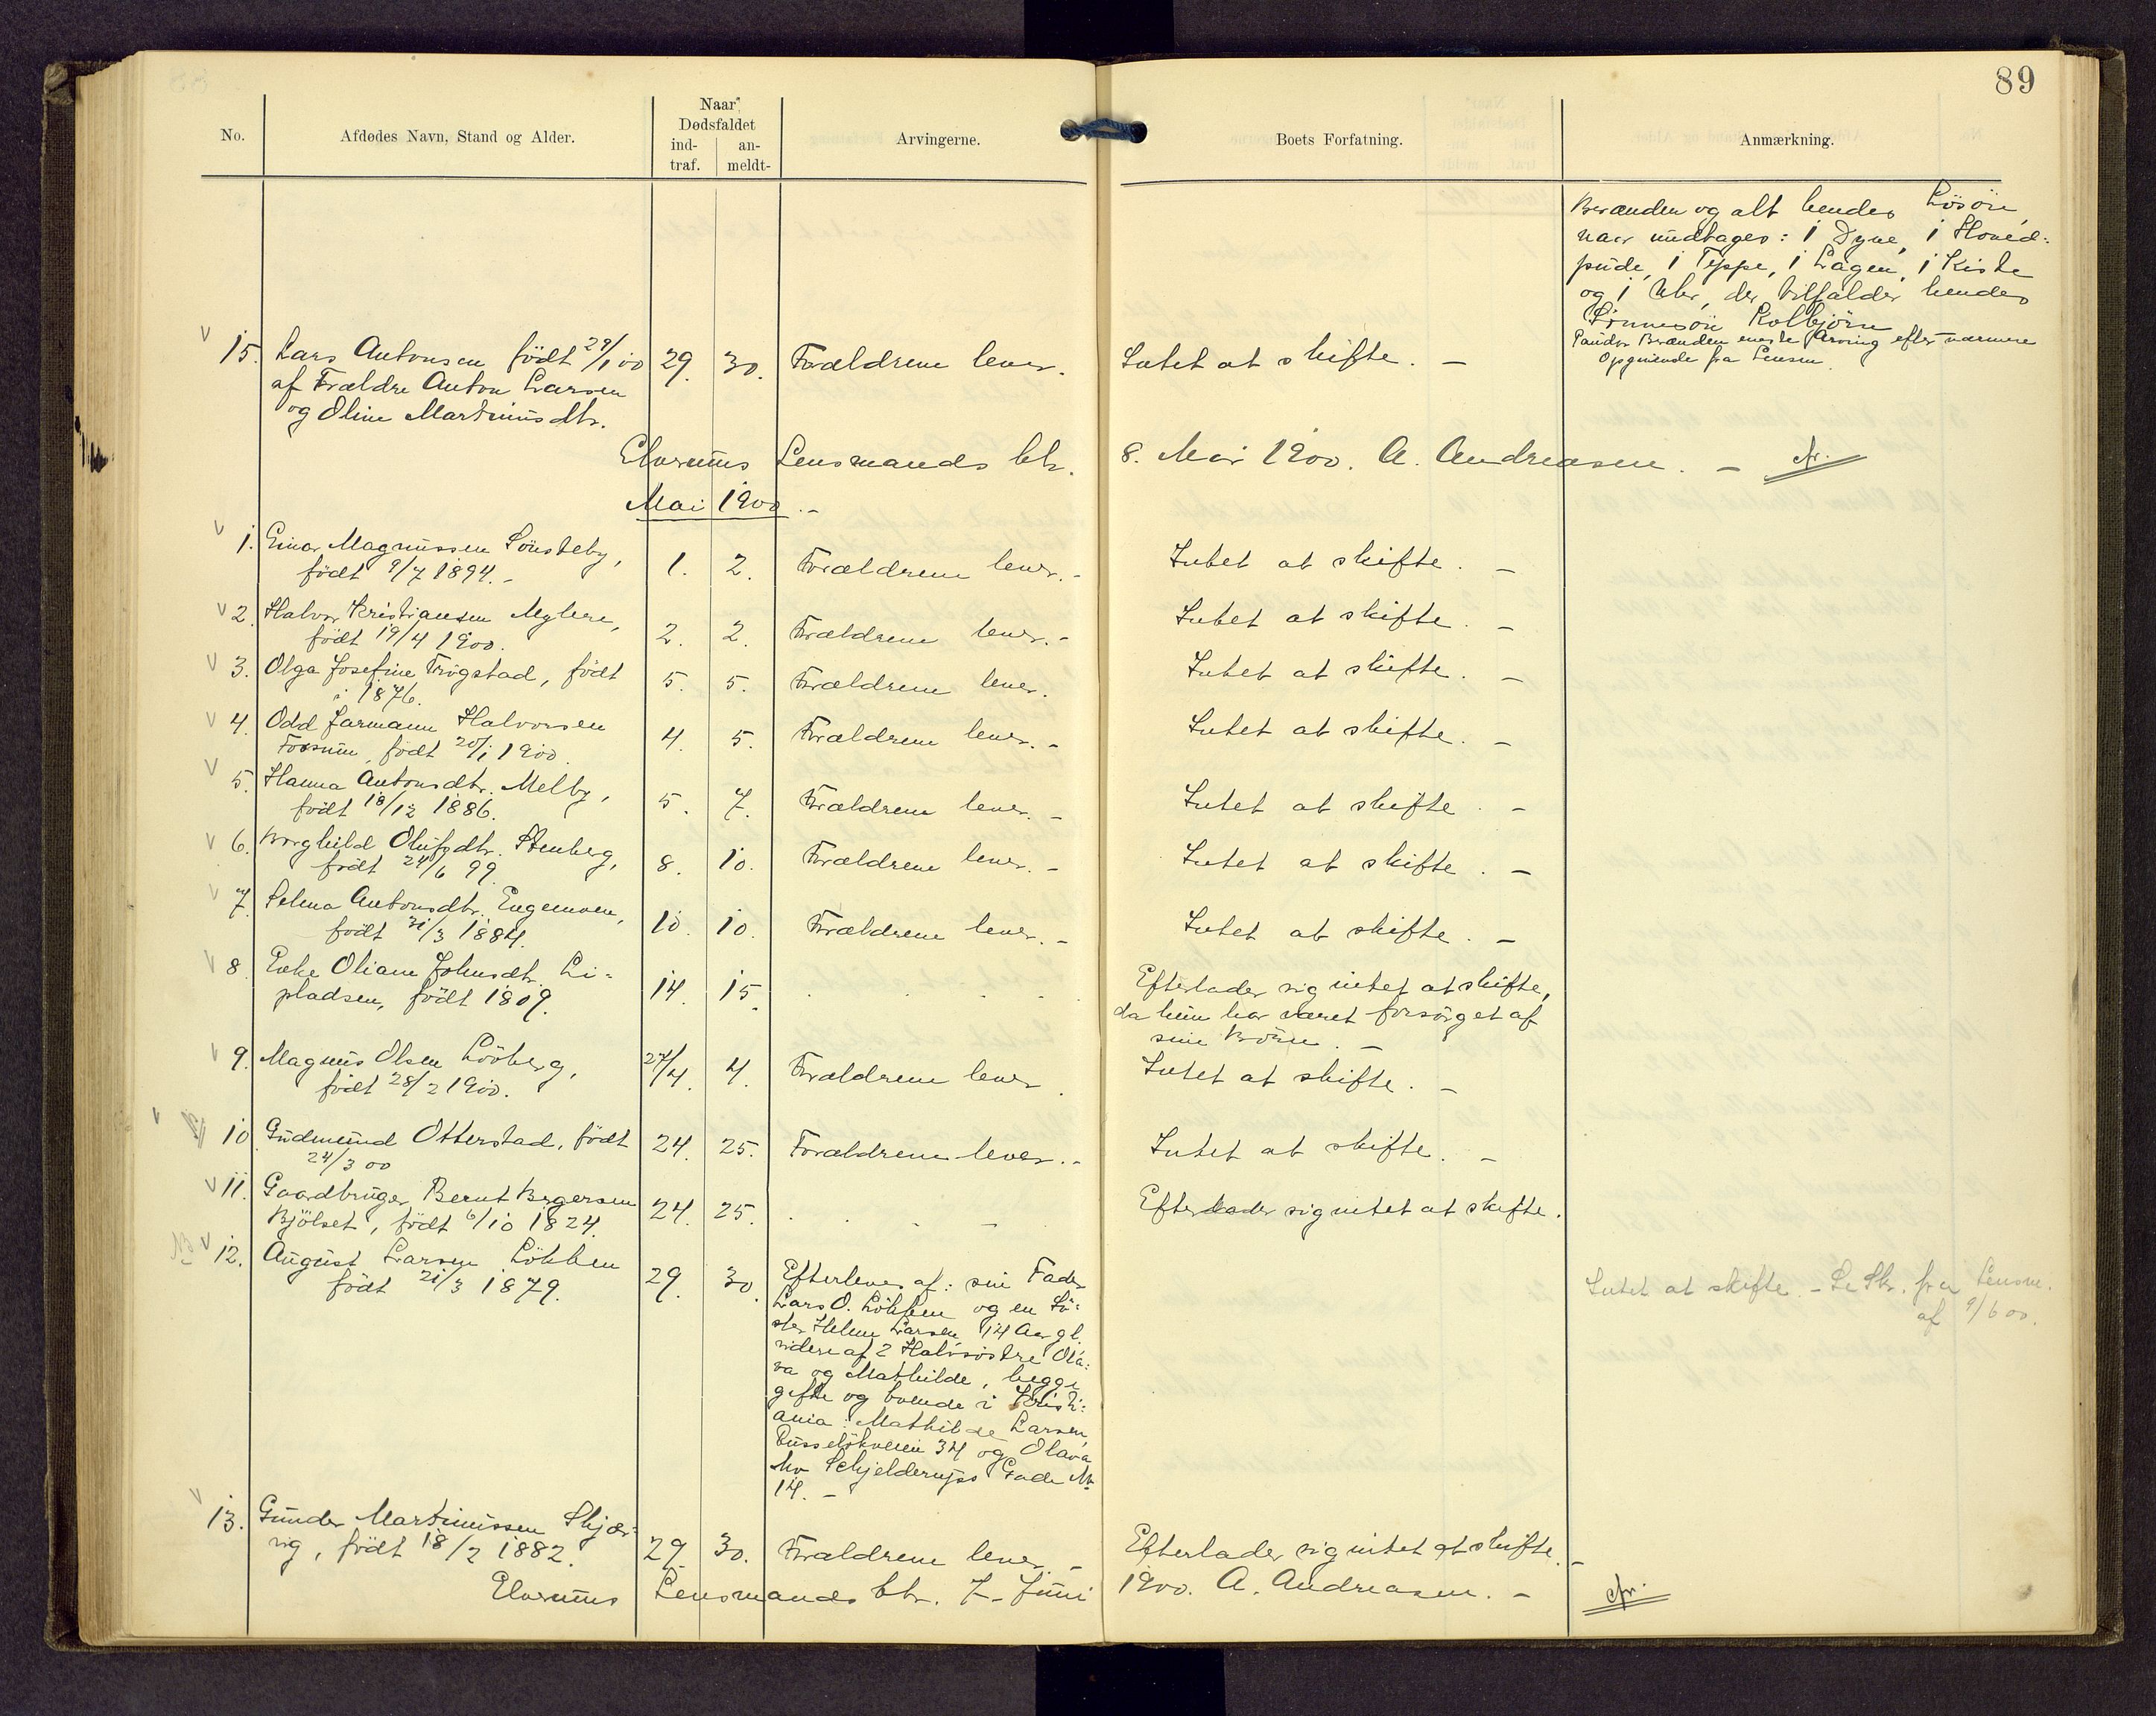 89
No.
Afdødes Navn, Stand og Alder.
Naar
Dødsfaldet
ind-
traf.
an-
meldt-
Arvingerne.
Boets Forfatning.
Anmærkning.
og alt hendes Lösöre,
naar undtages: 1 Dyne, 1 Hoved-
pude, 1 Teppe, 1 Lagen, 1 Kiste
og 1 Uhr, der tilfalder hendes
Sönnesön Kolbjörn
eneste Arving efter nærmere
Opgivende fra Lensm.
15. Lars Antonsen födt 29/1 00 29. 30. Forældrene lever. Intet at skifte. –
af Forældre Anton Larsen
og Oline Martinusdtr.
Elverums Lensmands btr. 8. Mai 1900. A. Andreasen. –
Mai 1900. –
1. Einar Magnussen Sönsteby, 1. 2. Forældrene lever. – Intet at skifte. –
födt 9/7 1894. –
2. Halvor Kristiansen Myhre, 2. 2. Forældrene lever. – Intet at skifte. –
födt 19/4 1900.
3. Olga Josefine Trögstad, födt 5. 5. Forældrene lever. Intet at skifte. –
i 1876.
4. Odd Jarmann Halvorsen 4. 5. Forældrene lever. – Intet at skifte. –
Fossum, födt 20/1 1900.
5. Hanna Antonsdtr. Melby, 5. 7. Forældrene lever. – Intet at skifte. –
födt 18/12 1886.
6. Borghild Olufsdtr. Stenberg, 8. 10. Forældrene lever. – Intet at skifte. –
födt 24/6 99.
7. Selma Antonsdtr. Engemoen, 10. 10. Forældrene lever. – Intet at skifte. –
födt 31/3 1884.
8. Enke Oliane Johnsdtr. Li- 14. 15. Efterlader sig intet at skifte,
pladsen, födt 1809. da hun har været forsörget af
sine Börn. –
9. Magnus Olsen Lövberg, 27/4. 4. Forældrene lever Intet at skifte. –
födt 28/2 1900.
10 Gudmund Otterstad, födt 24. 25. Forældrene lever. – Intet at skifte. –
24/3 00
11. Gaardbruger Bernt Bergersen 24. 25. Efterlader sig intet at skifte.
Bjölset, födt 6/10 1824.
NB 12. August Larsen Lökken 29. 30.
födt 21/3 1879.
Efterleves af: sin Fader
Lars O. Lökken og en Sö-
ster Helene Larsen, 14 Aar gl.
videre af 2 Halvsöstre Ola-
va og Mathilde, begge
gifte og boende i Kristi-
ania: Mathilde Larsen,
Russelökveien 34 og Olava
Schjelderups Gade No
14. –
Intet at skifte. – Se Skr. fra Lensm.
af 9/6 00.
13. Gunder Martinussen Skjær- 29. 30. Forældrene lever. – Efterlader sig intet at skifte. –
vig, födt 18/2 1882.
Elverums Lensmands btr. 7. Juni 1900. A. Andreasen. –